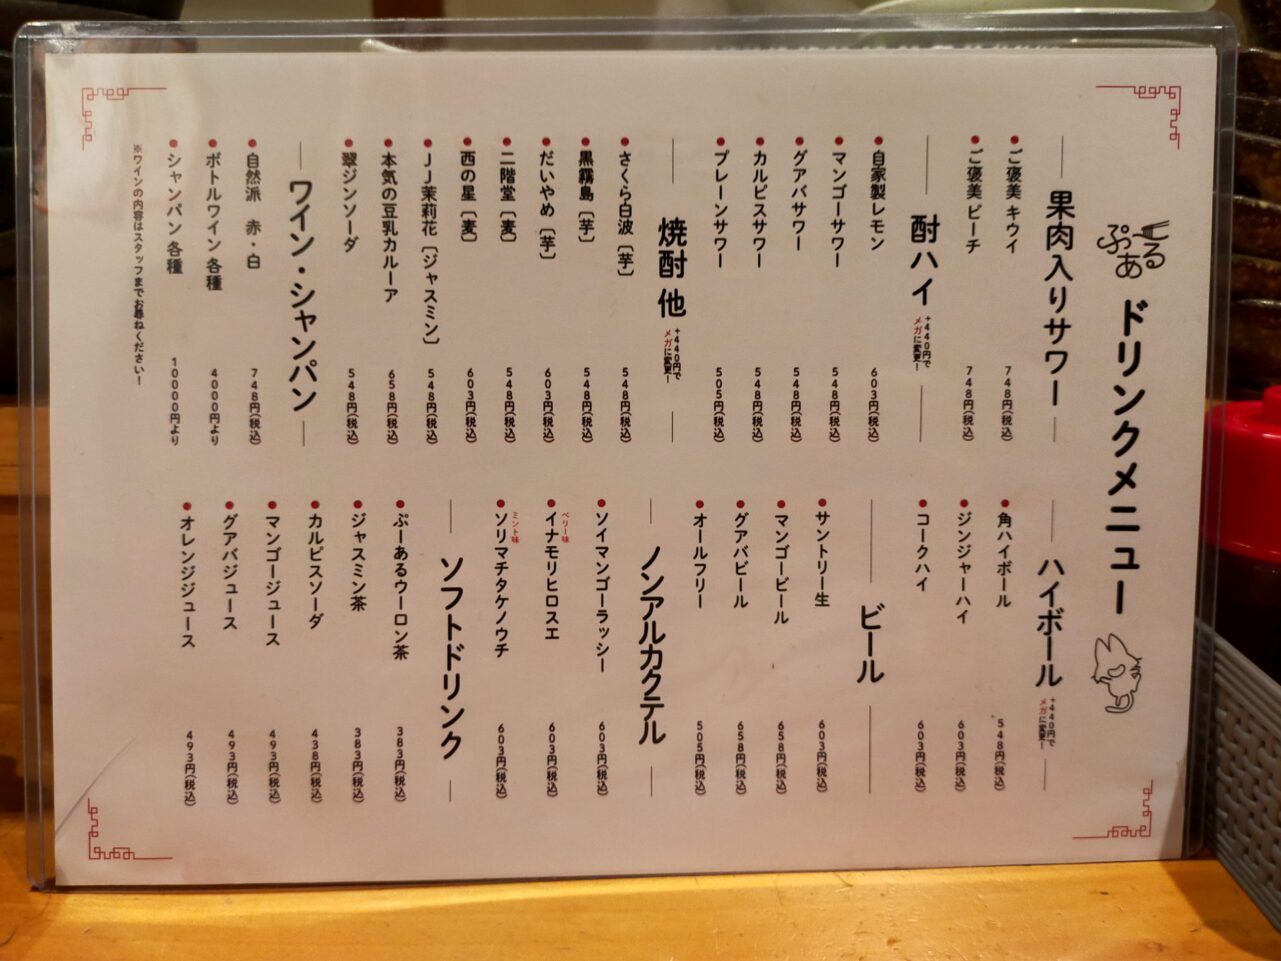 ぷーある ドリンクメニュー
果肉入りサワー
ご褒美 キウイ 748円(税込)
ご褒美 ピーチ 748円(税込)
酎ハイ +440円でメガに変更!
自家製レモン 603円(税込)
マンゴーサワー 548円(税込)
グアバサワー 548円(税込)
カルピスサワー 548円(税込)
プレーンサワー 505円(税込)
焼酎 他 +440円でメガに変更!
さくら白波〔芋〕 548円(税込)
黒霧島〔芋〕 548円(税込)
だいやめ〔芋〕 603円(税込)
二階堂〔麦〕 548円(税込)
西の星〔麦〕 603円(税込)
JJ茉莉花〔ジャスミン〕 548円(税込)
本気の豆乳カルーア 658円(税込)
翠ジンソーダ 548円(税込)
ワイン・シャンパン
自然派 赤・白 748円(税込)
ボトルワイン 各種 4000円より
シャンパン 各種 10000円より
※ワインの内容はスタッフまでお尋ねください!
ハイボール +440円でメガに変更!
角ハイボール 548円(税込)
ジンジャーハイ 603円(税込)
コークハイ 603円(税込)
ビール
サントリー生 603円(税込)
マンゴービール 658円(税込)
グアバビール 658円(税込)
オールフリー 505円(税込)
ノンアルカクテル
ソイマンゴーラッシー 603円(税込)
ベリー味
イナモリヒロスエ 603円(税込)
ミント味
ソリマチタケノウチ 603円(税込)
ソフトドリンク
ぷーあるウーロン茶 383円(税込)
ジャスミン茶 383円(税込)
カルピスソーダ 438円(税込)
マンゴージュース 493円(税込)
グアバジュース 493円(税込)
オレンジジュース 493円(税込)